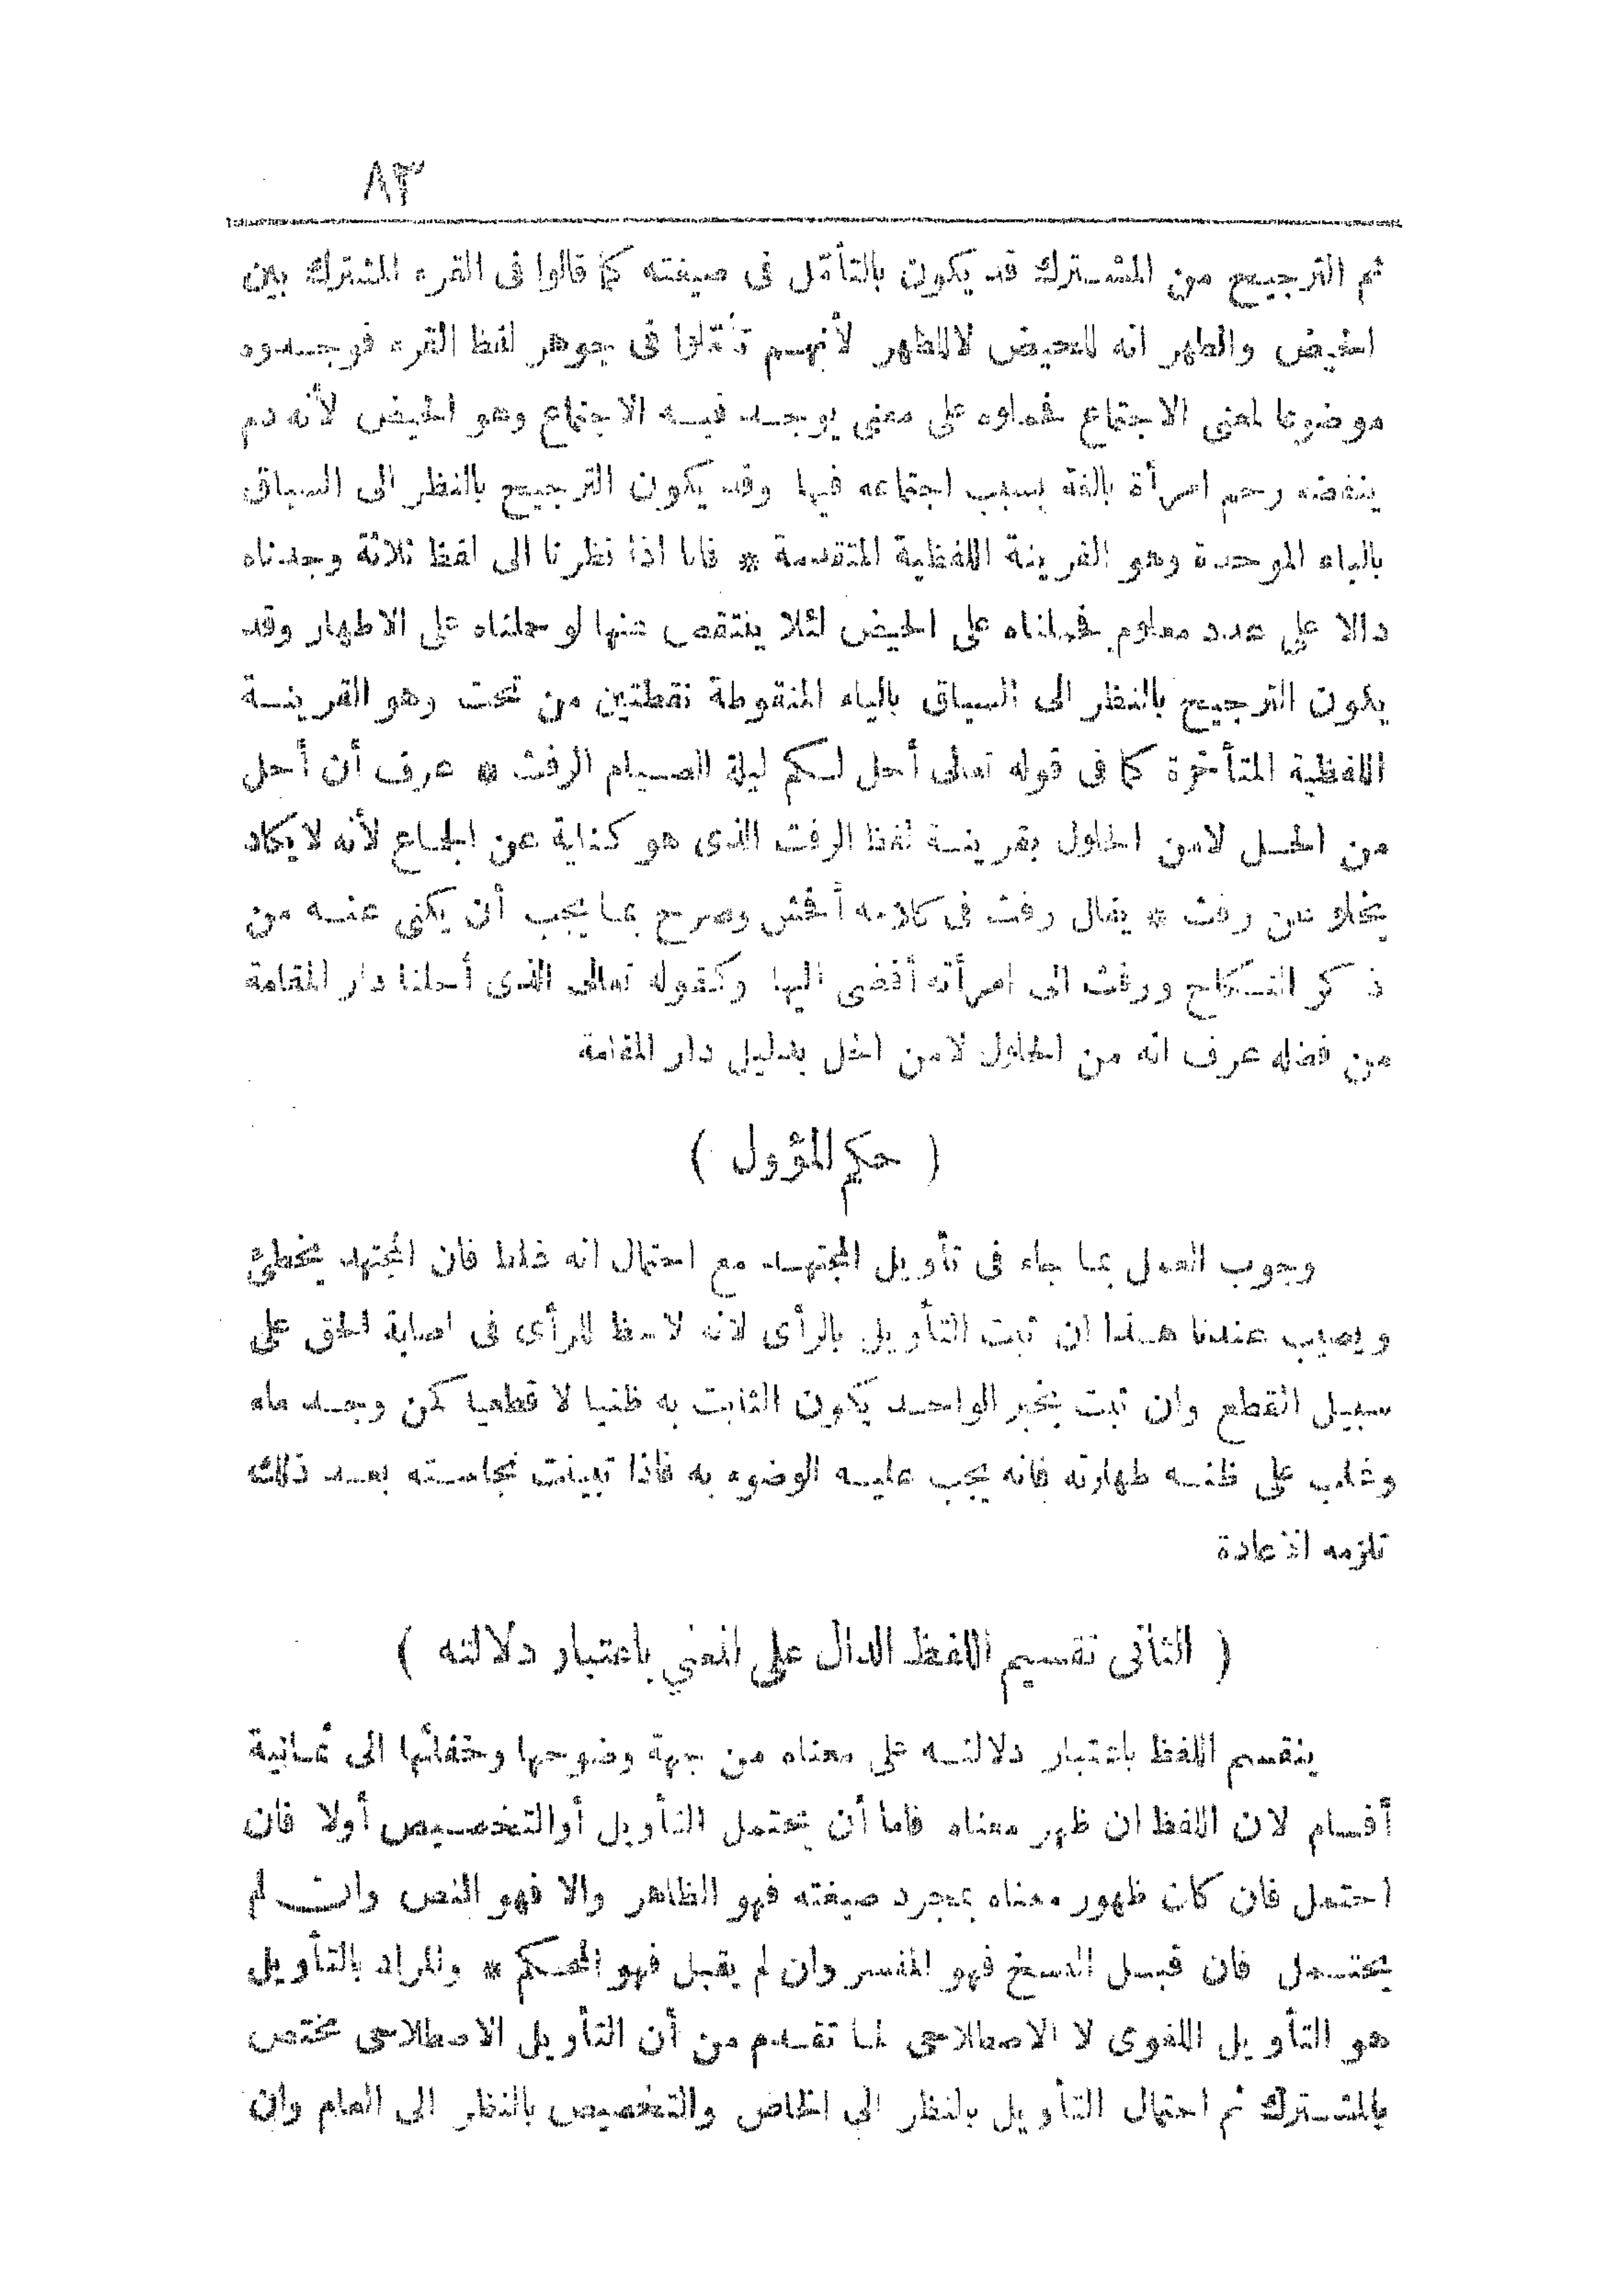 ٨٣
ثم الترجيح من المشترك قد يكون بالتأمل فى صيغته كما قالوا فى القرء المشترك بين
الحيض والطهر انه للحيض لاللطهر لأنهم تأملوا فى جوهر لفظ القرء فوجدوه
موضوعا لمعنى الاجتماع فحملوه على معنى يوجد فيه الاجتماع وهو الحيض لأنه دم
ينفضه رحم امرأة بالغة بسبب اجتماعه فيها وقد يكون الترجيح بالنظر الى السباق
بالباء الموحدة وهو القرينة اللفظية المتقدمة * فانا اذا نظرنا الى لفظ ثلاثة وجدناه
دالا على عدد معلوم فحملناه على الحيض لئلا ينتقص عنها لو حملناه على الاطهار وقد
يكون الترجيح بالنظر الى السياق بالياء المنقوطة نقطتين من تحت وهو القرينة
اللفظية المتأخرة كما فى قوله تعالى أحل لكم ليلة الصيام الرفث * عرف أن أحل
من الحل لامن الحلول بقرينة لفظ الرفث الذى هو كناية عن الجماع لأنه لايكاد
يخلو عن رفث * يقال رفث فى كلامه أفحش وصرح بما يجب أن يكنى عنه من
ذكر النكاح ورفث الى امرأته أفضى اليها وكقوله تعالى الذى أحلنا دار المقامة
من فضله عرف انه من الحلول لامن الحل بدليل دار المقامة
( حكم المؤول )
وجوب العمل بما جاء فى تأويل المجتهد مع احتمال انه غلط فان المجتهد يخطئ
ويصيب عندنا هذا ان ثبت التأويل بالرأى لانه لاحظ للرأى فى اصابة الحق على
سبيل القطع وان ثبت بخبر الواحد يكون الثابت به ظنيا لا قطعيا كمن وجد ماء
وغلب على ظنه طهارته فانه يجب عليه الوضوء به فاذا تبينت نجاسته بعد ذلك
تلزمه الاعادة
( الثانى تقسيم اللفظ الدال على المعنى باعتبار دلالته )
ينقسم اللفظ باعتبار دلالته على معناه من جهة وضوحها وخفائها الى ثمانية
أقسام لان اللفظ ان ظهر معناه فاما أن يحتمل التأويل أوالتخصيص أولا فان
احتمل فان كان ظهور معناه بمجرد صيغته فهو الظاهر والا فهو النص وان لم
يحتمل فان قبل النسخ فهو المفسر وان لم يقبل فهو المحكم * والمراد بالتأويل
هو التأويل اللغوى لا الاصطلاحى لما تقدم من أن التأويل الاصطلاحى مختص
بالمشترك ثم احتمال التأويل بالنظر الى الخاص والتخصيص بالنظر الى العام وان